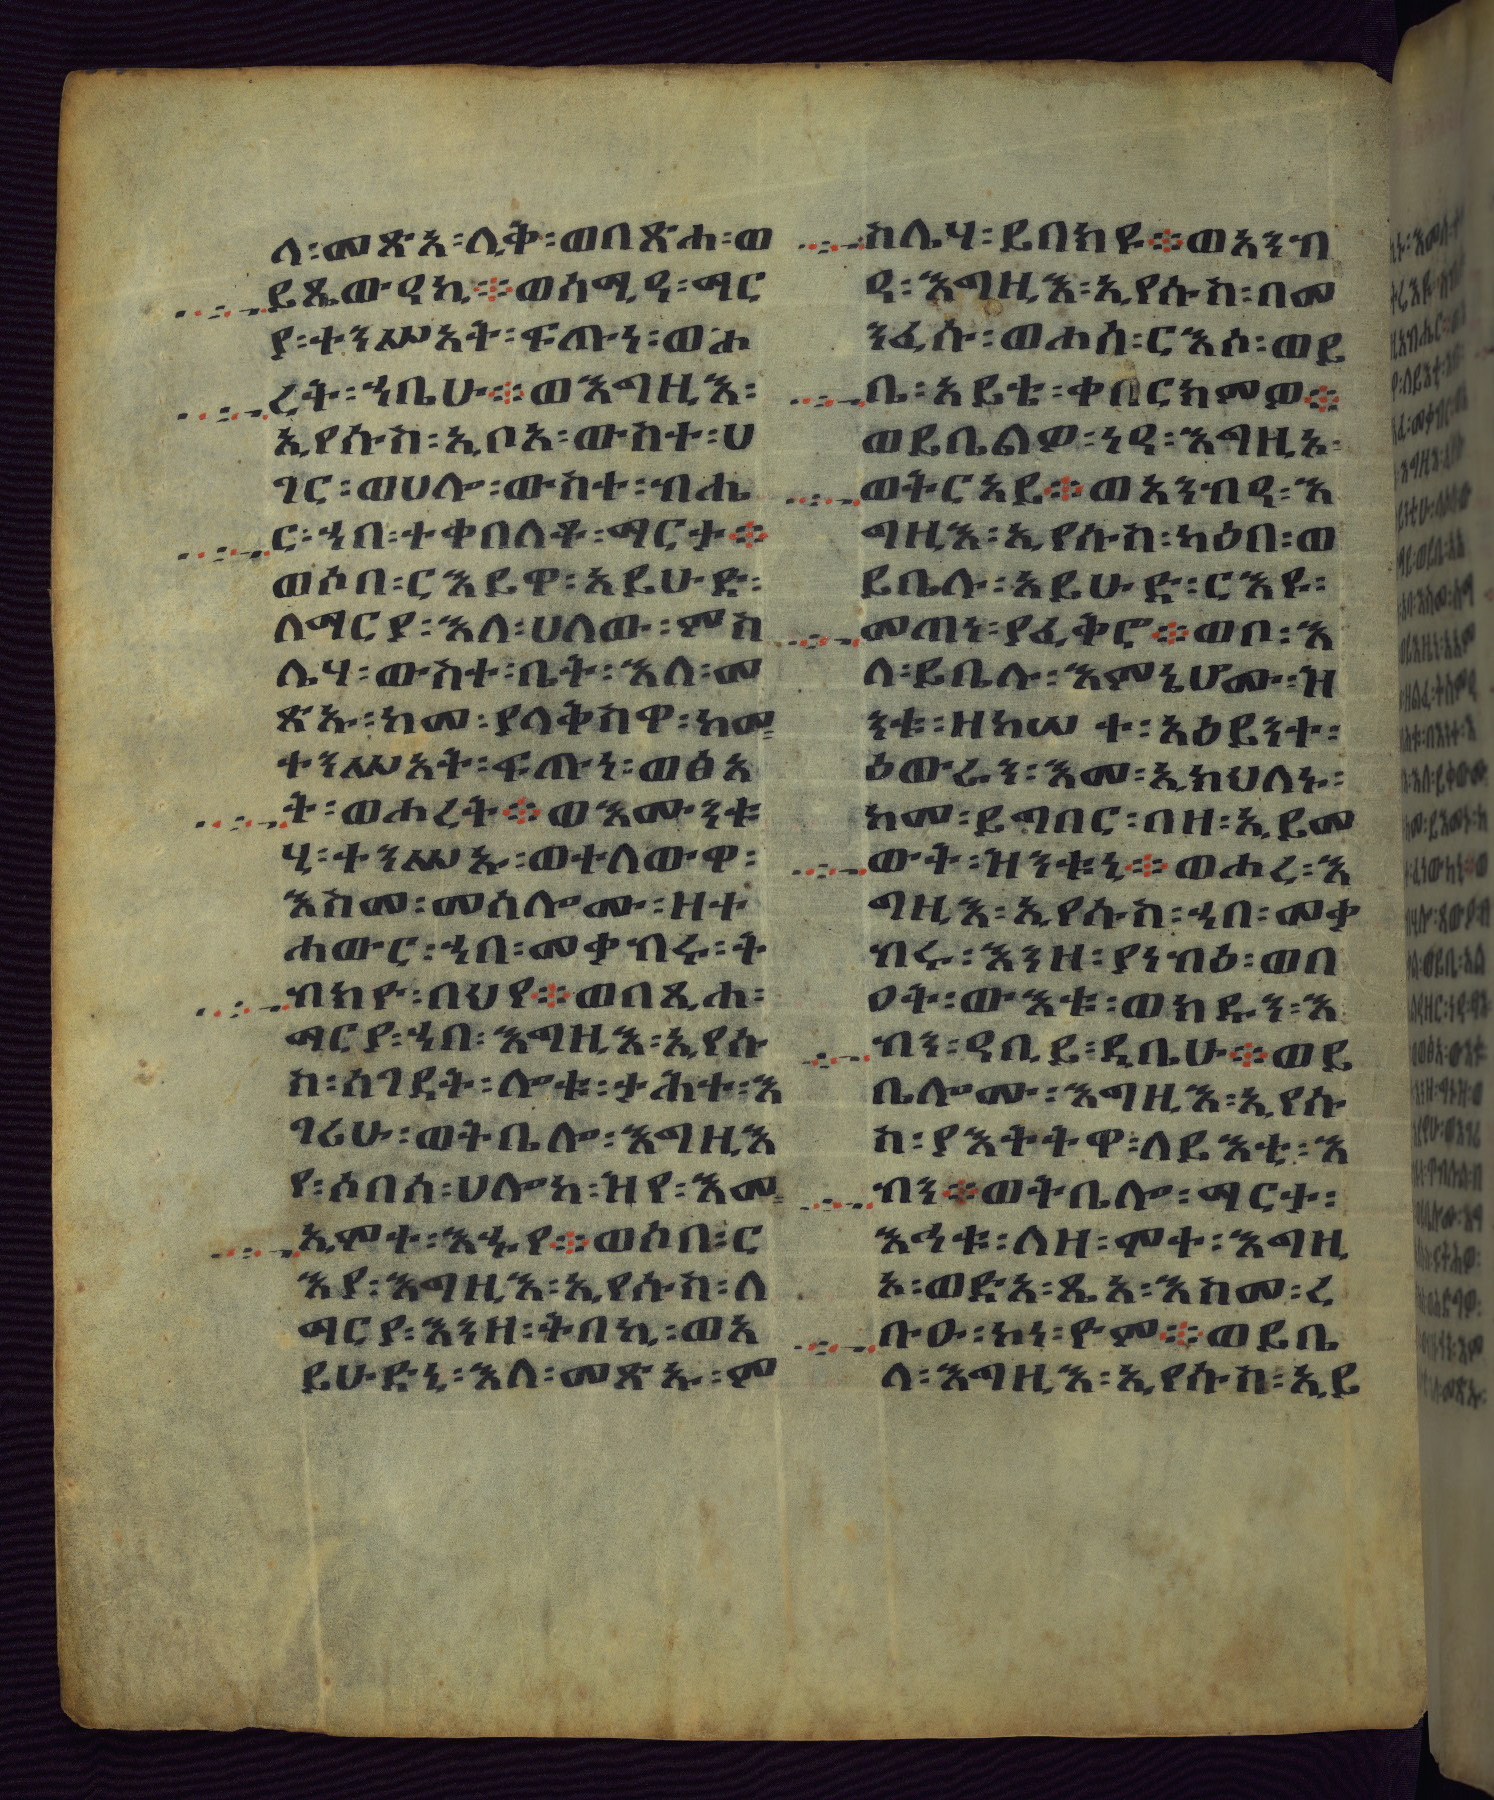 ላ፡መጽአ፡ሊቅ፡ወበጽሐ፡ወ
ይጼውዓኪ፨ወሰሚዓ፡ማር
ያ፡ተንሥአት፡ፍጡነ፡ወሐ
ረት፡ኀቤሁ፨ወእግዚእ፡
ኢየሱስ፡ኢቦአ፡ውስተ፡ሀ
ገር፡ወሀሎ፡ውስተ፡ብሔ
ር፡ኀበ፡ተቀበለቶ፡ማርታ፨
ወሶበ፡ርእይዋ፡አይሁድ፡
ለማርያ፡እለ፡ሀለው፡ምስ
ሌሃ፡ውስተ፡ቤት፡እለ፡መ
ጽኡ፡ከመ፡ያላቅስዋ፡ከመ፡
ተንሥአት፡ፍጡነ፡ወፅአ
ት፡ወሐረት፨ወእሙንቱ
ሂ፡ተንሥኡ፡ወተለውዋ፡
እስመ፡መሰሎሙ፡ዘተ
ሐውር፡ኀበ፡መቃብሩ፡ት
ብክዮ፡በህየ፨ወበጺሐ፡
ማርያ፡ኀበ፡እግዚእ፡ኢየሱ
ስ፡ሰገደት፡ሎቱ፡ታሕተ፡እ
ገሪሁ፡ወትቤሎ፡እግዚእ
የ፡ሶበሰ፡ሀሎከ፡ዝየ፡እመ፡
ኢሞተ፡እኁየ፨ወሶበ፡ር
እያ፡እግዚእ፡ኢየሱስ፡ለ
ማርያ፡እንዘ፡ትበኪ፡ወአ
ይሁድኒ፡እለ፡መጽኡ፡ም
ስሌሃ፡ይበክዩ፨ወአንብ
ዓ፡እግዚእ፡ኢየሱስ፡በመ
ንፈሱ፡ወሐሰ፡ርእሶ፡ወይ
ቤ፡አይቴ፡ቀበርክምዎ፨
ወይቤልዎ፡ነዓ፡እግዚኦ፡
ወትርአይ፨ወአንብዓ፡እ
ግዚእ፡ኢየሱስ፡ካዕበ፡ወ
ይቤሉ፡አይሁድ፡ርእዩ፡
መጠነ፡ያፈቅሮ፨ወቦ፡እ
ለ፡ይቤሉ፡እምኔሆሙ፡ዝ
ንቱ፡ዘከሠተ፡አዕይንተ፡
ዕውራን፡እመ፡ኢክህለኑ፡
ከመ፡ይግበር፡በዘ፡ኢይመ
ውት፡ዝንቱኒ፨ወሐረ፡እ
ግዚእ፡ኢየሱስ፡ኀበ፡መቃ
ብሩ፡እንዘ፡ያነብዕ፡ወበ
ዐት፡ውእቱ፡ወክዱን፡እ
ብን፡ዲቤ፡ይ፡ዲቤሁ፨ወይ
ቤሎሙ፡እግዚእ፡ኢየሱ
ስ፡ያእትትዋ፡ለይእቲ፡እ
ብን፨ወትቤሎ፡ማርታ፡
እኅቱ፡ለዘ፡ሞተ፡እግዚ
ኦ፡ወድአ፡ጼአ፡እስመ፡ረ
ቡዑ፡ከነ፡ዮም፨ወይቤ
ላ፡እግዚእ፡ኢየሱስ፡ኢይ